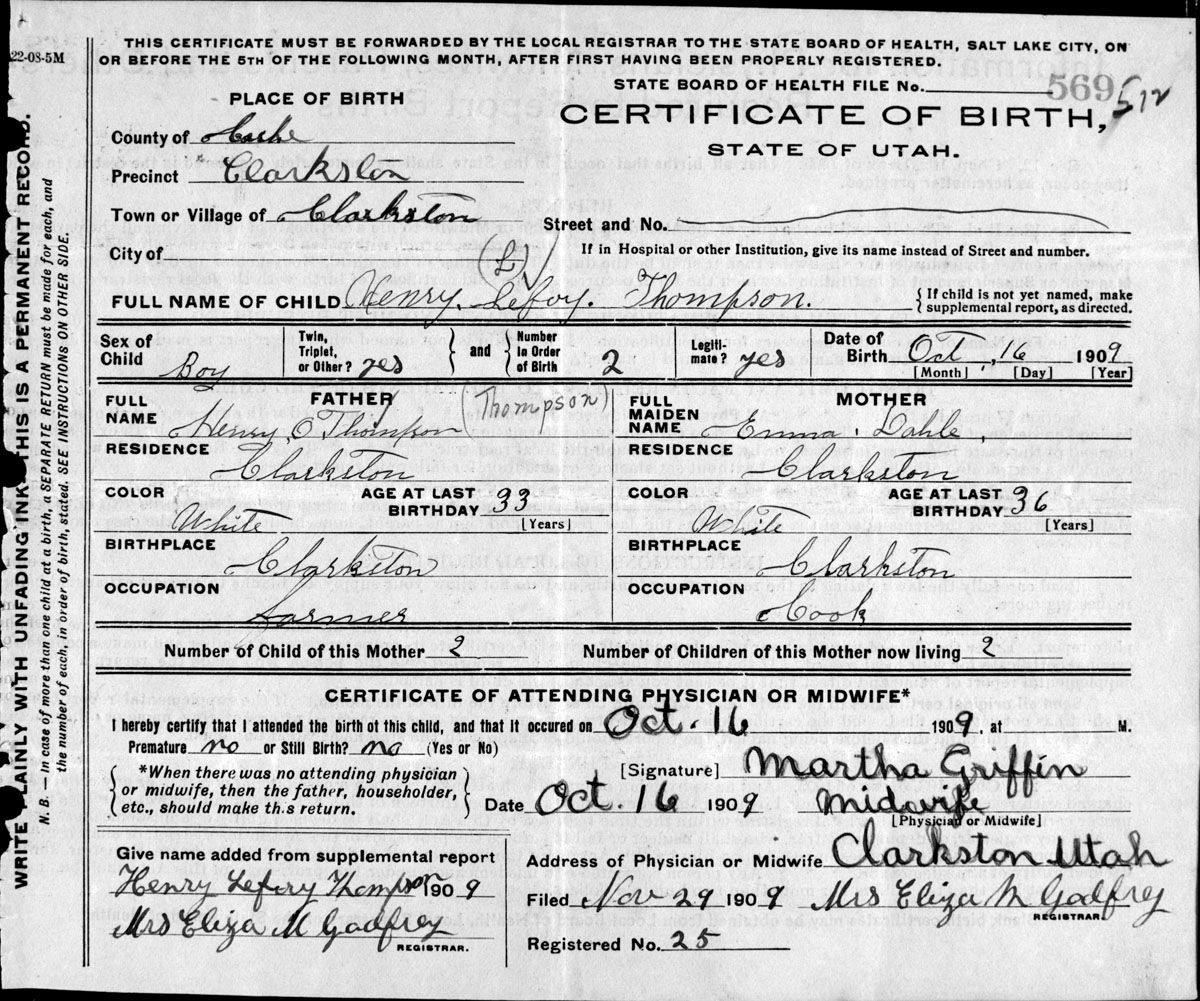 22-08-5M
THIS CERTIFICATE MUST BE FORWARDED BY THE LOCAL REGISTRAR TO THE STATE BOARD OF HEALTH, SALT LAKE CITY, ON
OR BEFORE THE 5TH OF THE FOLLOWING MONTH, AFTER FIRST HAVING BEEN PROPERLY REGISTERED.
STATE BOARD OF HEALTH FILE No. 569 512
PLACE OF BIRTH
CERTIFICATE OF BIRTH,
STATE OF UTAH.
County of Cache
Precinct * Clarkston
Town or Village of Clarkston
Street and No.
City of
If in Hospital or other Institution, give its name instead of Street and number.
(L)
FULL NAME OF CHILD Henry Lefoy. Thompson.
{ If child is not yet named, make
supplemental report, as directed.
Sex of Child Boy
Twin, Triplet, or Other? yes } and { Number in Order of Birth 2
Legiti-mate? yes
Date of Birth Oct, 16 1909
[Month] [Day] [Year]
FATHER
FULL NAME Henry O Thompson (Thompson)
RESIDENCE Clarkston
COLOR White
AGE AT LAST BIRTHDAY 33 [Years]
BIRTHPLACE Clarkston
OCCUPATION Farmer
MOTHER
FULL MAIDEN NAME Emma Dahle
RESIDENCE Clarkston
COLOR White
AGE AT LAST BIRTHDAY 36 [Years]
BIRTHPLACE Clarkston
OCCUPATION Cook
Number of Child of this Mother 2
Number of Children of this Mother now living 2
CERTIFICATE OF ATTENDING PHYSICIAN OR MIDWIFE*
I hereby certify that I attended the birth of this child, and that it occured on Oct. 16 1909, at M.
Premature no or Still Birth? no (Yes or No)
{ *When there was no attending physician
or midwife, then the father, householder,
etc., should make this return. }
[Signature] Martha Griffin
Date Oct. 16 1909 Midwife
[Physician or Midwife]
Give name added from supplemental report
Henry Lefory Thompson 1909
Mrs Eliza M Godfrey
REGISTRAR.
Address of Physician or Midwife Clarkston Utah
Filed Nov 29 1909 Mrs Eliza M Godfrey
REGISTRAR.
Registered No. 25
WRITE PLAINLY WITH UNFADING INK—THIS IS A PERMANENT RECORD.
N. B. — In case of more than one child at a birth, a SEPARATE RETURN must be made for each, and
the number of each, in order of birth, stated. SEE INSTRUCTIONS ON OTHER SIDE.